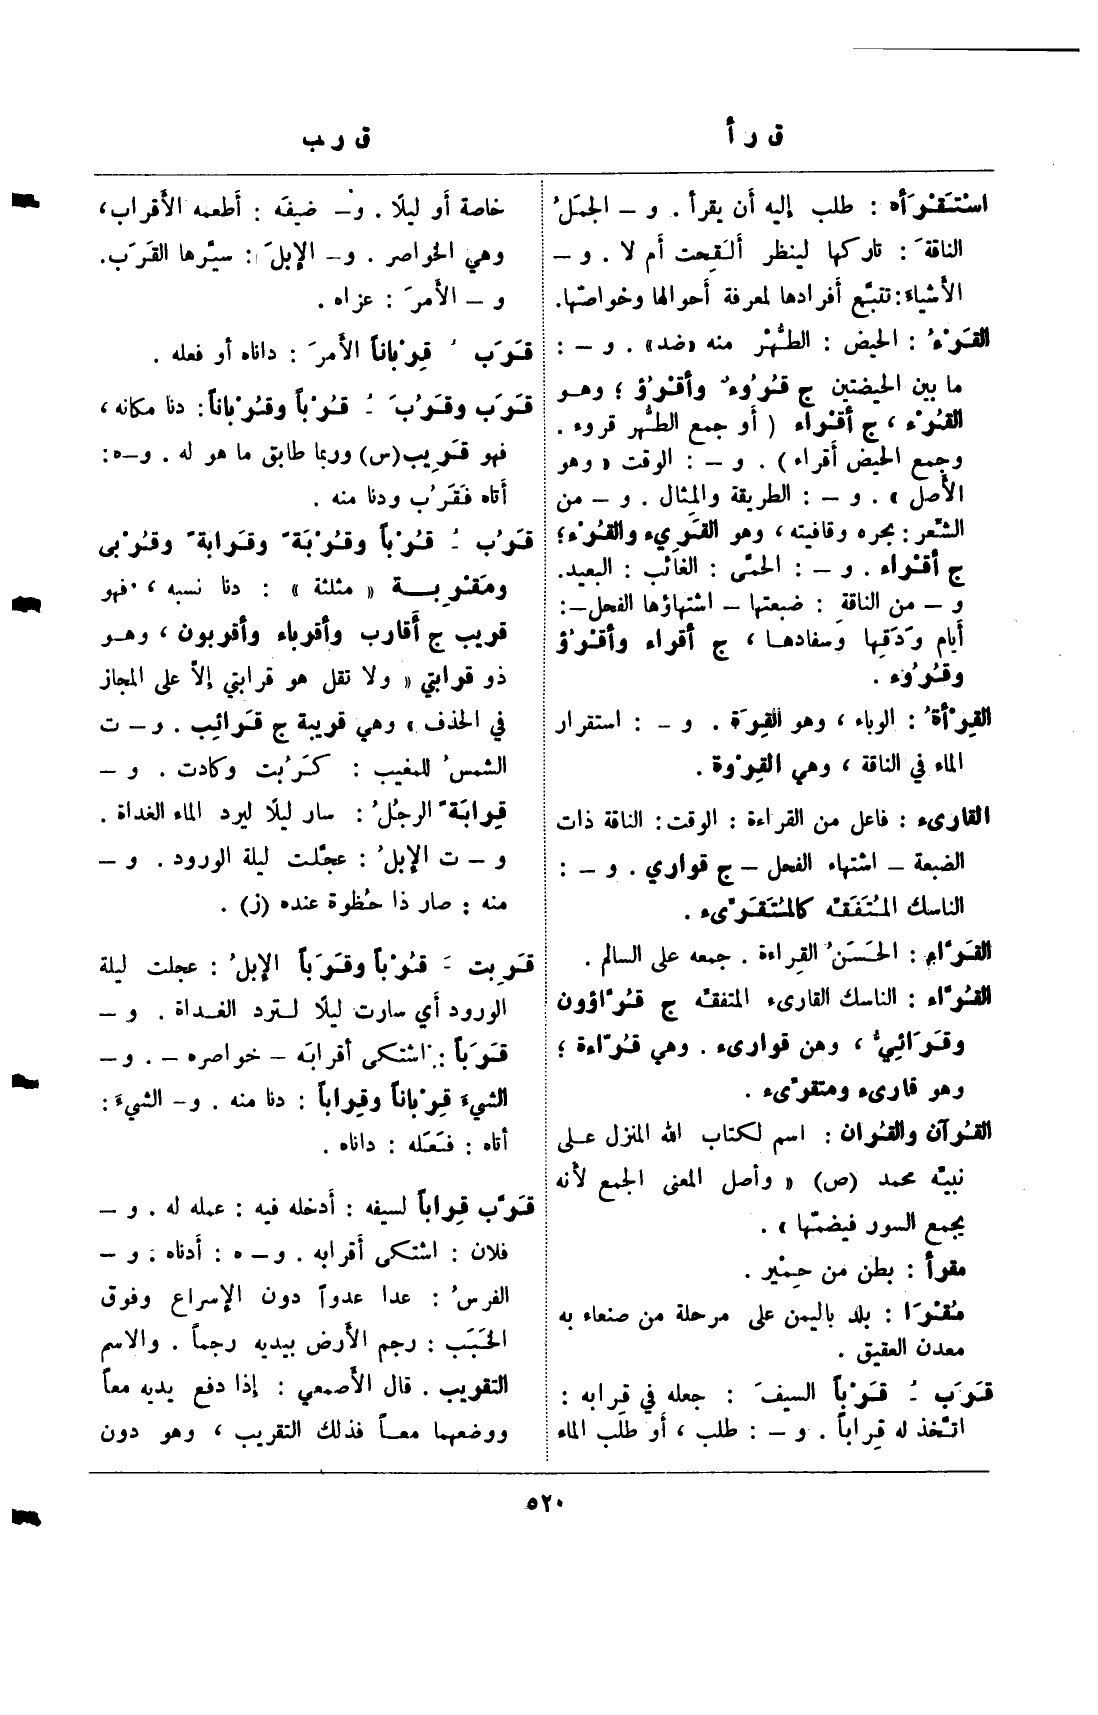 ق ر أ
ق ر ب
اسْتَقْرَأه : طلب إليه أن يقرأ . و – الجَمَلُ
الناقةَ : تاركها لينظر أَلَقِحت أم لا . و –
الأشياءَ : تتبَّع أفرادها لمعرفة أحوالها وخواصّها.
القَرْءُ : الحيض : الطُّهْر منه «ضد» . و – :
ما بين الحيضتين ج قُرُوء وأقْرُؤ ؛ وهو
القُرْء ، ج أقْراء ( أو جمع الطُّهر قروء .
وجمع الحيض أقراء ) . و – : الوقت « وهو
الأصل » . و – : الطريقة والمِثال . و – من
الشِّعر : بحره وقافيته ، وهو القَرِيء والقُرْء ؛
ج أقْراء . و – : الحمّى : الغائب : البعيد.
و – من الناقة : ضبعتها – اشتهاؤها الفحل – :
أيام وَدَقِها وسفادها ، ج أقراء وأقْرُؤ
وقُرُوء .
القِرْأةُ : الوباء ، وهو القِرَة . و – : استقرار
الماء في الناقة ، وهي القِرْوة .
القارىء : فاعل من القراءة : الوقت : الناقة ذات
الضبعة – اشتهاء الفحل – ج قواري . و – :
الناسك المُتَفَقّه كالمُتَقَرّىء .
القَرَّاء : الحَسَنُ القِراءة . جمعه على السالم .
القُرَّاء : الناسك القارىء المتفقّه ج قُرَّاؤون
وقَرَائِيُّ ، وهن قوارىء . وهي قُرّاءة ؛
وهو قارىء ومتقرّىء .
القُرآن والقُران : اسم لكتاب الله المنزل على
نبيّه محمد (ص) « وأصل المعنى الجمع لأنه
يجمع السور فيضمّها » .
مقرأ : بطن من حِمْير .
مُقْرَا : بلد باليمن على مرحلة من صنعاء به
معدن العقيق .
قَرَبَ ُ قَرْباً السيفَ : جعله في قِرابه :
اتّخذ له قِراباً . و – : طلب ، أو طلب الماء
خاصة أو ليلًا . و – ضيفَه : أطعمه الأقراب،
وهي الخواصر . و – الإبلَ : سيَّرها القَرَب.
و – الأمرَ : عزاه .
قَرَب ُ قِرْباناً الأمرَ : داناه أو فعله .
قَرَب وقَرُبَ ُ قُرْباً وقُرْباناً : دنا مكانه ،
فهو قَرِيب (س) وربما طابق ما هو له . و – ه :
أتاه فَقَرُب ودنا منه .
قَرُب ُ قُرْباً وقُرْبَةً وقَرابةً وقُرْبى
ومَقْرِبة « مثلثة » : دنا نسبه ، فهو
قريب ج أقارب وأقرباء وأقربون ، وهو
ذو قرابتي « ولا تقل هو قرابتي إلاّ على المجاز
في الحذف » وهي قريبة ج قَرائِب . و – ت
الشمسُ للمغيب : كَرُبت وكادت . و –
قِرابَةً الرجُلُ : سار ليلًا ليرد الماء الغداة .
و – ت الإبلُ : عجّلت ليلة الورود . و –
منه : صار ذا حُظوة عنده (ز) .
قَرِبت َ قُرْباً وقَرَباً الإبلُ : عجلت ليلة
الورود أي سارت ليلًا لترد الغداة . و –
قَرَباً : اشتكى أقرابَه – خواصره – . و –
الشيءَ قِرْباناً وقِراباً : دنا منه . و – الشيءَ :
أتاه : فَعَله : داناه .
قَرَّب قِراباً لسيفه : أدخله فيه : عمله له . و –
فلان : اشتكى أقرابه . و – ه : أدناه . و –
الفرسُ : عدا عدواً دون الإسراع وفوق
الخَبَب : رجم الأرض بيديه رجماً . والاسم
التقريب . قال الأصمعي : إذا دفع يديه معاً
ووضعهما معاً فذلك التقريب ، وهو دون
٥٢٠